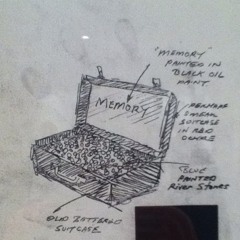 "MEMORY"
PAINTED IN
BLACK OIL
PAINT
MEMORY
SUITCASE
IN RED
BLUE
PAINTED
River Stones
OLD BATTERED
SUITCASE